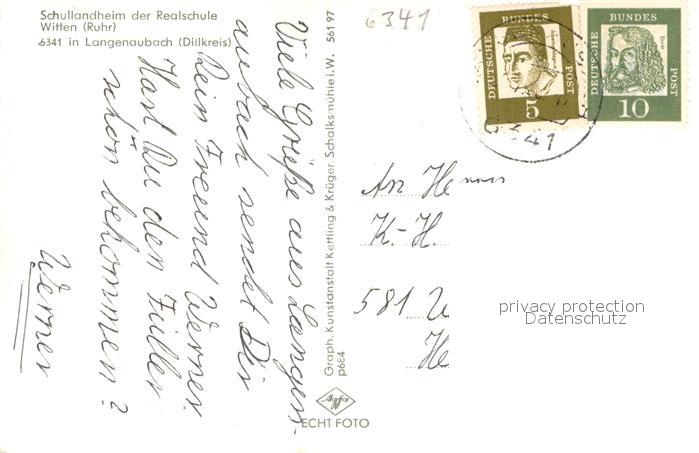 Schullandheim der Realschule
Witten (Ruhr)
6341 in Langenaubach (Dillkreis)
6341
Viele Grüße aus Langen-
aubach sendet Dir
Dein Freund Werner.
Hast Du den Füller
schön bekommen?
Werner
Graph. Kunstanstalt Kettling & Krüger Schalksmühle i. W. 561 97
p684
ECHT FOTO
DEUTSCHE BUNDES POST
5
DEUTSCHE BUNDES POST
Dürer
10
An Herrn
K-H.
581 W
He
privacy protection
Datenschutz